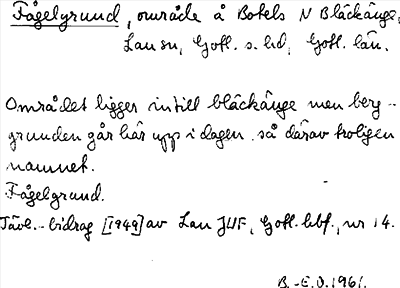 Fågelgrund, område å Botels N Bläckänge,
Lau sn, Gotl. s. hd, Gotl. län.
Området ligger intill bläckänge men berg-
grunden går här upp i dagen så därav troligen
namnet.
Fågelgrund.
Tävl.-bidrag [1949] av Lau JUF, Gotl. hbf, nr 14.
B.-E.O. 1961.